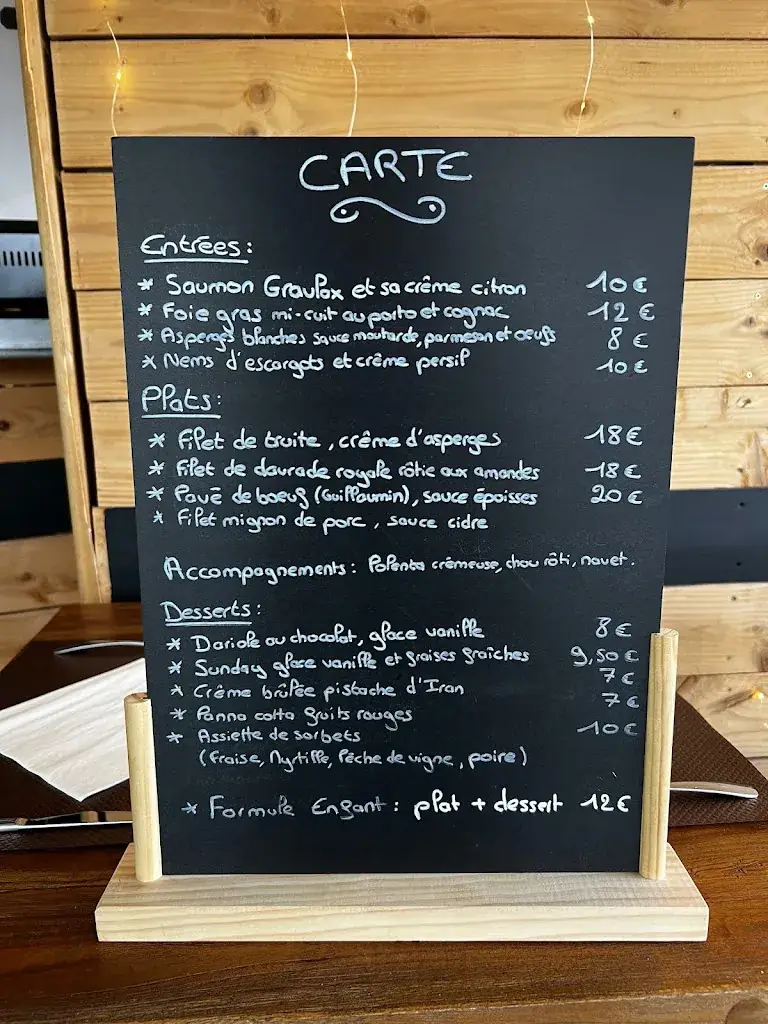 CARTE
Entrées :
* Saumon Gravlax et sa crême citron 10 €
* Foie gras mi-cuit au porto et cognac 12 €
* Asperges blanches sauce moutarde, parmesan et oeufs 8 €
* Nems d'escargots et crême persil 10 €
Plats :
* Filet de truite, crême d'asperges 18 €
* Filet de daurade royale rôtie aux amandes 18 €
* Pavé de boeuf (Guillaumin), sauce époisses 20 €
* Filet mignon de porc, sauce cidre
Accompagnements : Polenta crêmeuse, chou rôti, navet.
Desserts :
* Dariole au chocolat, glace vanille 8 €
* Sunday glace vanille et fraises fraîches 9,50 €
* Crême brûlée pistache d'Iran 7 €
* Panna cotta fruits rouges 7 €
* Assiette de sorbets 10 €
(Fraise, Myrtille, Pêche de vigne, poire)
* Formule Enfant : plat + dessert 12 €